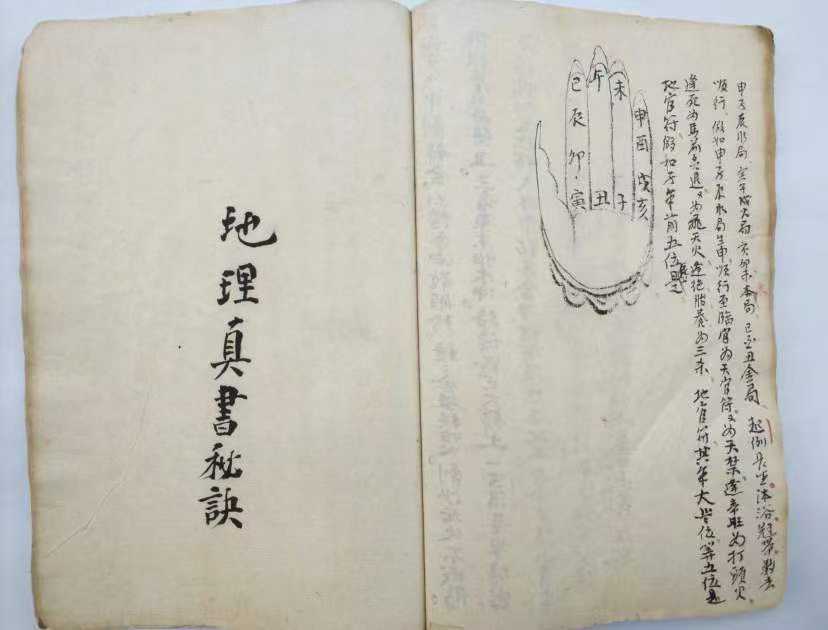 申子辰水局 寅午戌火局 亥卯未木局 巳酉丑金局 起例長生沐浴冠帶數去
順行 假如申子辰水局生申順行至臨官為天官符又為天禁逢帝旺為打頭火
逢死為馬前炎退又為飛天火逢絕胎養為三杀 地官符其年太歲位第五位是
地官符假如子年前五位辰是
申酉戌亥
未子
午丑
巳辰卯寅
地理真書秘訣